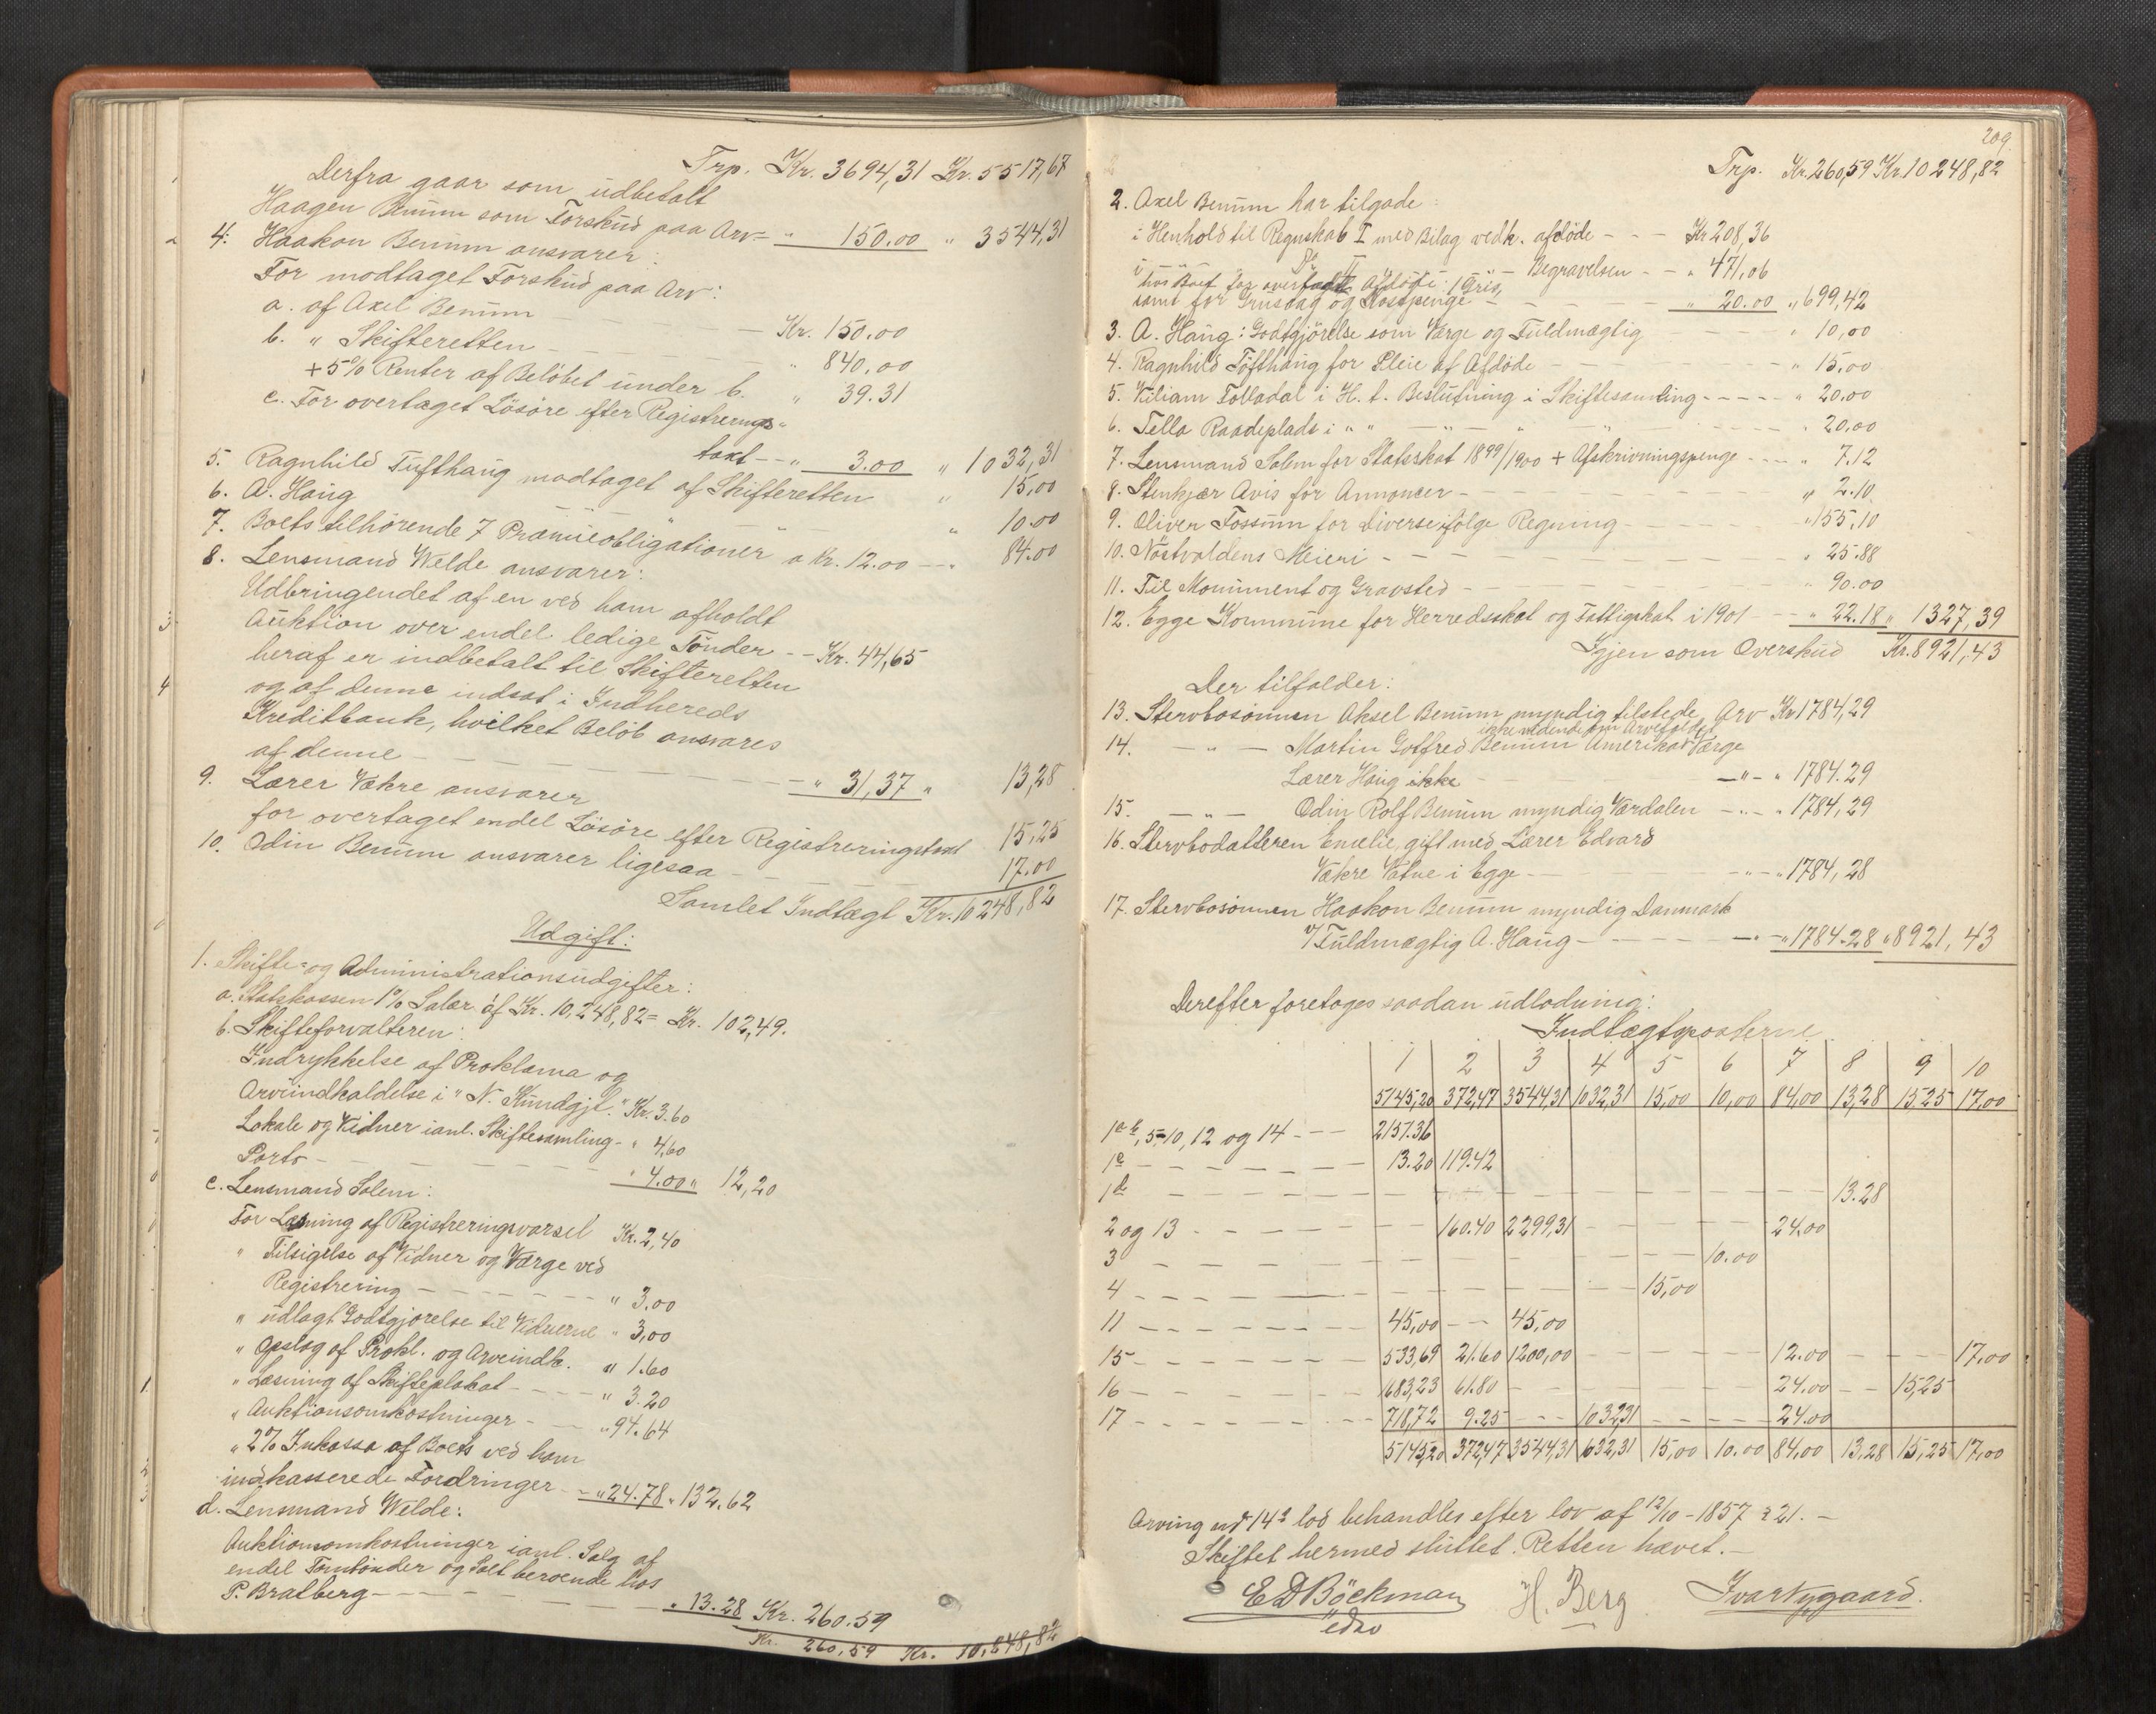 Trp. Kr. 3694,31 Kr. 5517,67
Derfra gaar som udbetalt
Haagen Benum som Forskud paa Arv = " 150.00 " 3544,31
4. Haakon Benum ansvarer:
For modtaget Forskud paa Arv:
a. af Axel Benum — Kr. 150.00
b. " Skifteretten — " 840,00
+ 5% Renter af Beløbet under b. " 39.31
c. For overtaget Løsøre efter Registrerings-
takt -- " 3.00 " 1032,31
5. Ragnhild Tufthaug modtaget af Skifteretten " 15,00
6. A. Haug " " " 10.00
7. Boets tilhørende 7 Præmieobligationer a Kr. 12.00 — " 84.00
8. Lensmand Welde ansvarer:
Udbringendet af en ved ham afholdt
Auktion over endel ledige Tønder -- Kr. 44,65
heraf er indbetalt til Skifteretten
og af denne indsat i Indhereds
Kreditbank, hvilket Beløb ansvares
af denne — " 31,37 " 13,28
9. Lærer Vækre ansvarer
for overtaget endel Løsøre efter Registreringstakst 15,25
10. Odin Benum ansvarer ligesaa — 17.00
Samlet Indtægt Kr. 10248,82
Udgift:
1. Skifte- og Administrationsudgifter:
a. Statskassen 1% Salær af Kr. 10,248,82 = Kr. 102,49.
b. Skifteforvalteren:
Indrykkelse af Proklama og
Arveindkaldelse i "N. Kundgjt." Kr. 3.60
Lokale og Vidner ianl. Skiftesamling - " 4,60
Porto — " 4.00 " 12,20
c. Lensmand Solem:
For Læsning af Registreringsvarsel Kr. 2,40
" Tilsigelse af Vidner og Værge ved
Registrering — " 3.00
" udlagt Godtgjørelse til Vidnerne " 3,00
" Opslag af Prokl. og Arveindk. " 1.60
" Læsning af Skifteplakat — " 3.20
" Auktionsomkostninger — " 94.64
" 2% Inkasso af Boets ved ham
indkasserede Fordringer - " 24.78 " 132.62
d. Lensmand Welde:
Auktionsomkostninger ianl. Salg af
endel Tomtønder og Salt beroende hos
P. Bratberg — " 13.28 Kr. 260.59
Kr. 260,59 Kr. 10,248,82
209
Trp. Kr. 260,59 Kr. 10248,82
2. Axel Benum har tilgode:
i Henhold til Regnskab I med Bilag vedk. afdøde - - - Kr 208,36
i — Do II — Begravelsen - - " 471,06
hos Boet for overtagt Afdøde: 1 Gris,
samt for og Kostpenge — " 20.00 " 699,42
3. A. Haug: Godtgjørelse som Værge og Fuldmægtig " 10,00
4. Ragnhild Tøfthaug for Pleie af Afdøde — " 15,00
5. Kiliam Folladal i H. t. Beslutning i Skiftesamling - - - " 20.00
6. Tella Raadeplads i " " — " — " " 20,00
7. Lensmand Solem for Statsskat 1899/1900 + Afskrivningspenge - - - " 7.12
8. Stenkjær Avis for Annoncer — " 2.10
9. Oliver Fossum for diverse ifølge Regning — " 155,10
10. Nøstvoldens Meieri — " 25.88
11. Til Monument og Gravsted — " 90.00
12. Egge Kommune for Herredsskat og Fattigskat i 1901 — " 22.18 " 1327,39
Igjen som Overskud Kr. 8921,43
Der tilfalder:
13. Stervbosønnen Aksel Benum myndig tilstede Arv Kr 1784,29
ikke vidende om Arvefaldet
14. — " — Martin Gotfred Benum Amerika Værge
Lærer Haug ikke — " - " 1784.29
15. — " — Odin Rolf Benum myndig Værdalen — " - " 1784,29
16. Stervbodatteren Emelie, gift med Lærer Edvard
Vækre Vatne i Egge — " - " 1784,28
17. Stervbosønnen Haakon Benum myndig Danmark
v/ Fuldmægtig A. Haug — " - " 1784.28 " 8921,43
Derefter foretages saadan udlodning:
Indtægtsposterne
1 2 3 4 5 6 7 8 9 10
5145,20 372,47 3544,31 1032,31 15,00 10,00 84,00 13,28 15.25 17,00
1a b, 5-10, 12 og 14 - - - 2157.36
1c — 13.20 119.42
1d — 13.28
2 og 13 — 160.40 2299,31 — 24.00
3 — 10.00
4 — 15,00
11 — 45,00 - - 45,00
15 — 533,69 21.60 1200,00 — 12.00 — 17.00
16 — 1683,23 61.80 — 24.00 — 15,25
17 — 718,72 9.25 - - - 1032,31 — 24.00
5145,20 372,47 3544,31 1032,31 15,00 10.00 84,00 13,28 15,25 17,00
Arving ud 14de lod behandles efter lov af 12/10 - 1857 § 21. —
Skiftet hermed sluttet. Retten hævet. —
E D Böckman H. Berg Ivar Nygaard.
edsv